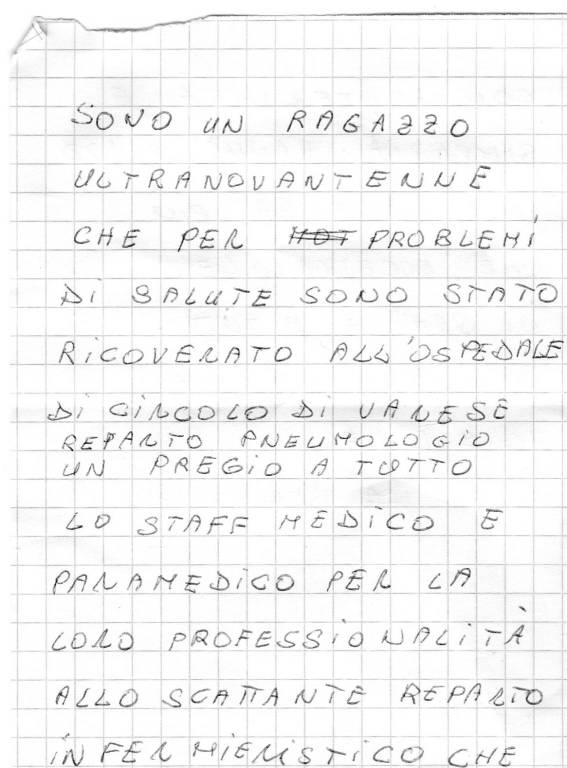 SONO UN RAGAZZO
ULTRANOVANTENNE
CHE PER MOT PROBLEMI
DI SALUTE SONO STATO
RICOVERATO ALL'OSPEDALE
DI CIRCOLO DI VARESE
REPARTO PNEUMOLOGIO
UN PREGIO A TUTTO
LO STAFF MEDICO E
PARAMEDICO PER LA
LORO PROFESSIONALITÀ
ALLO SCATTANTE REPARTO
INFERMIERISTICO CHE